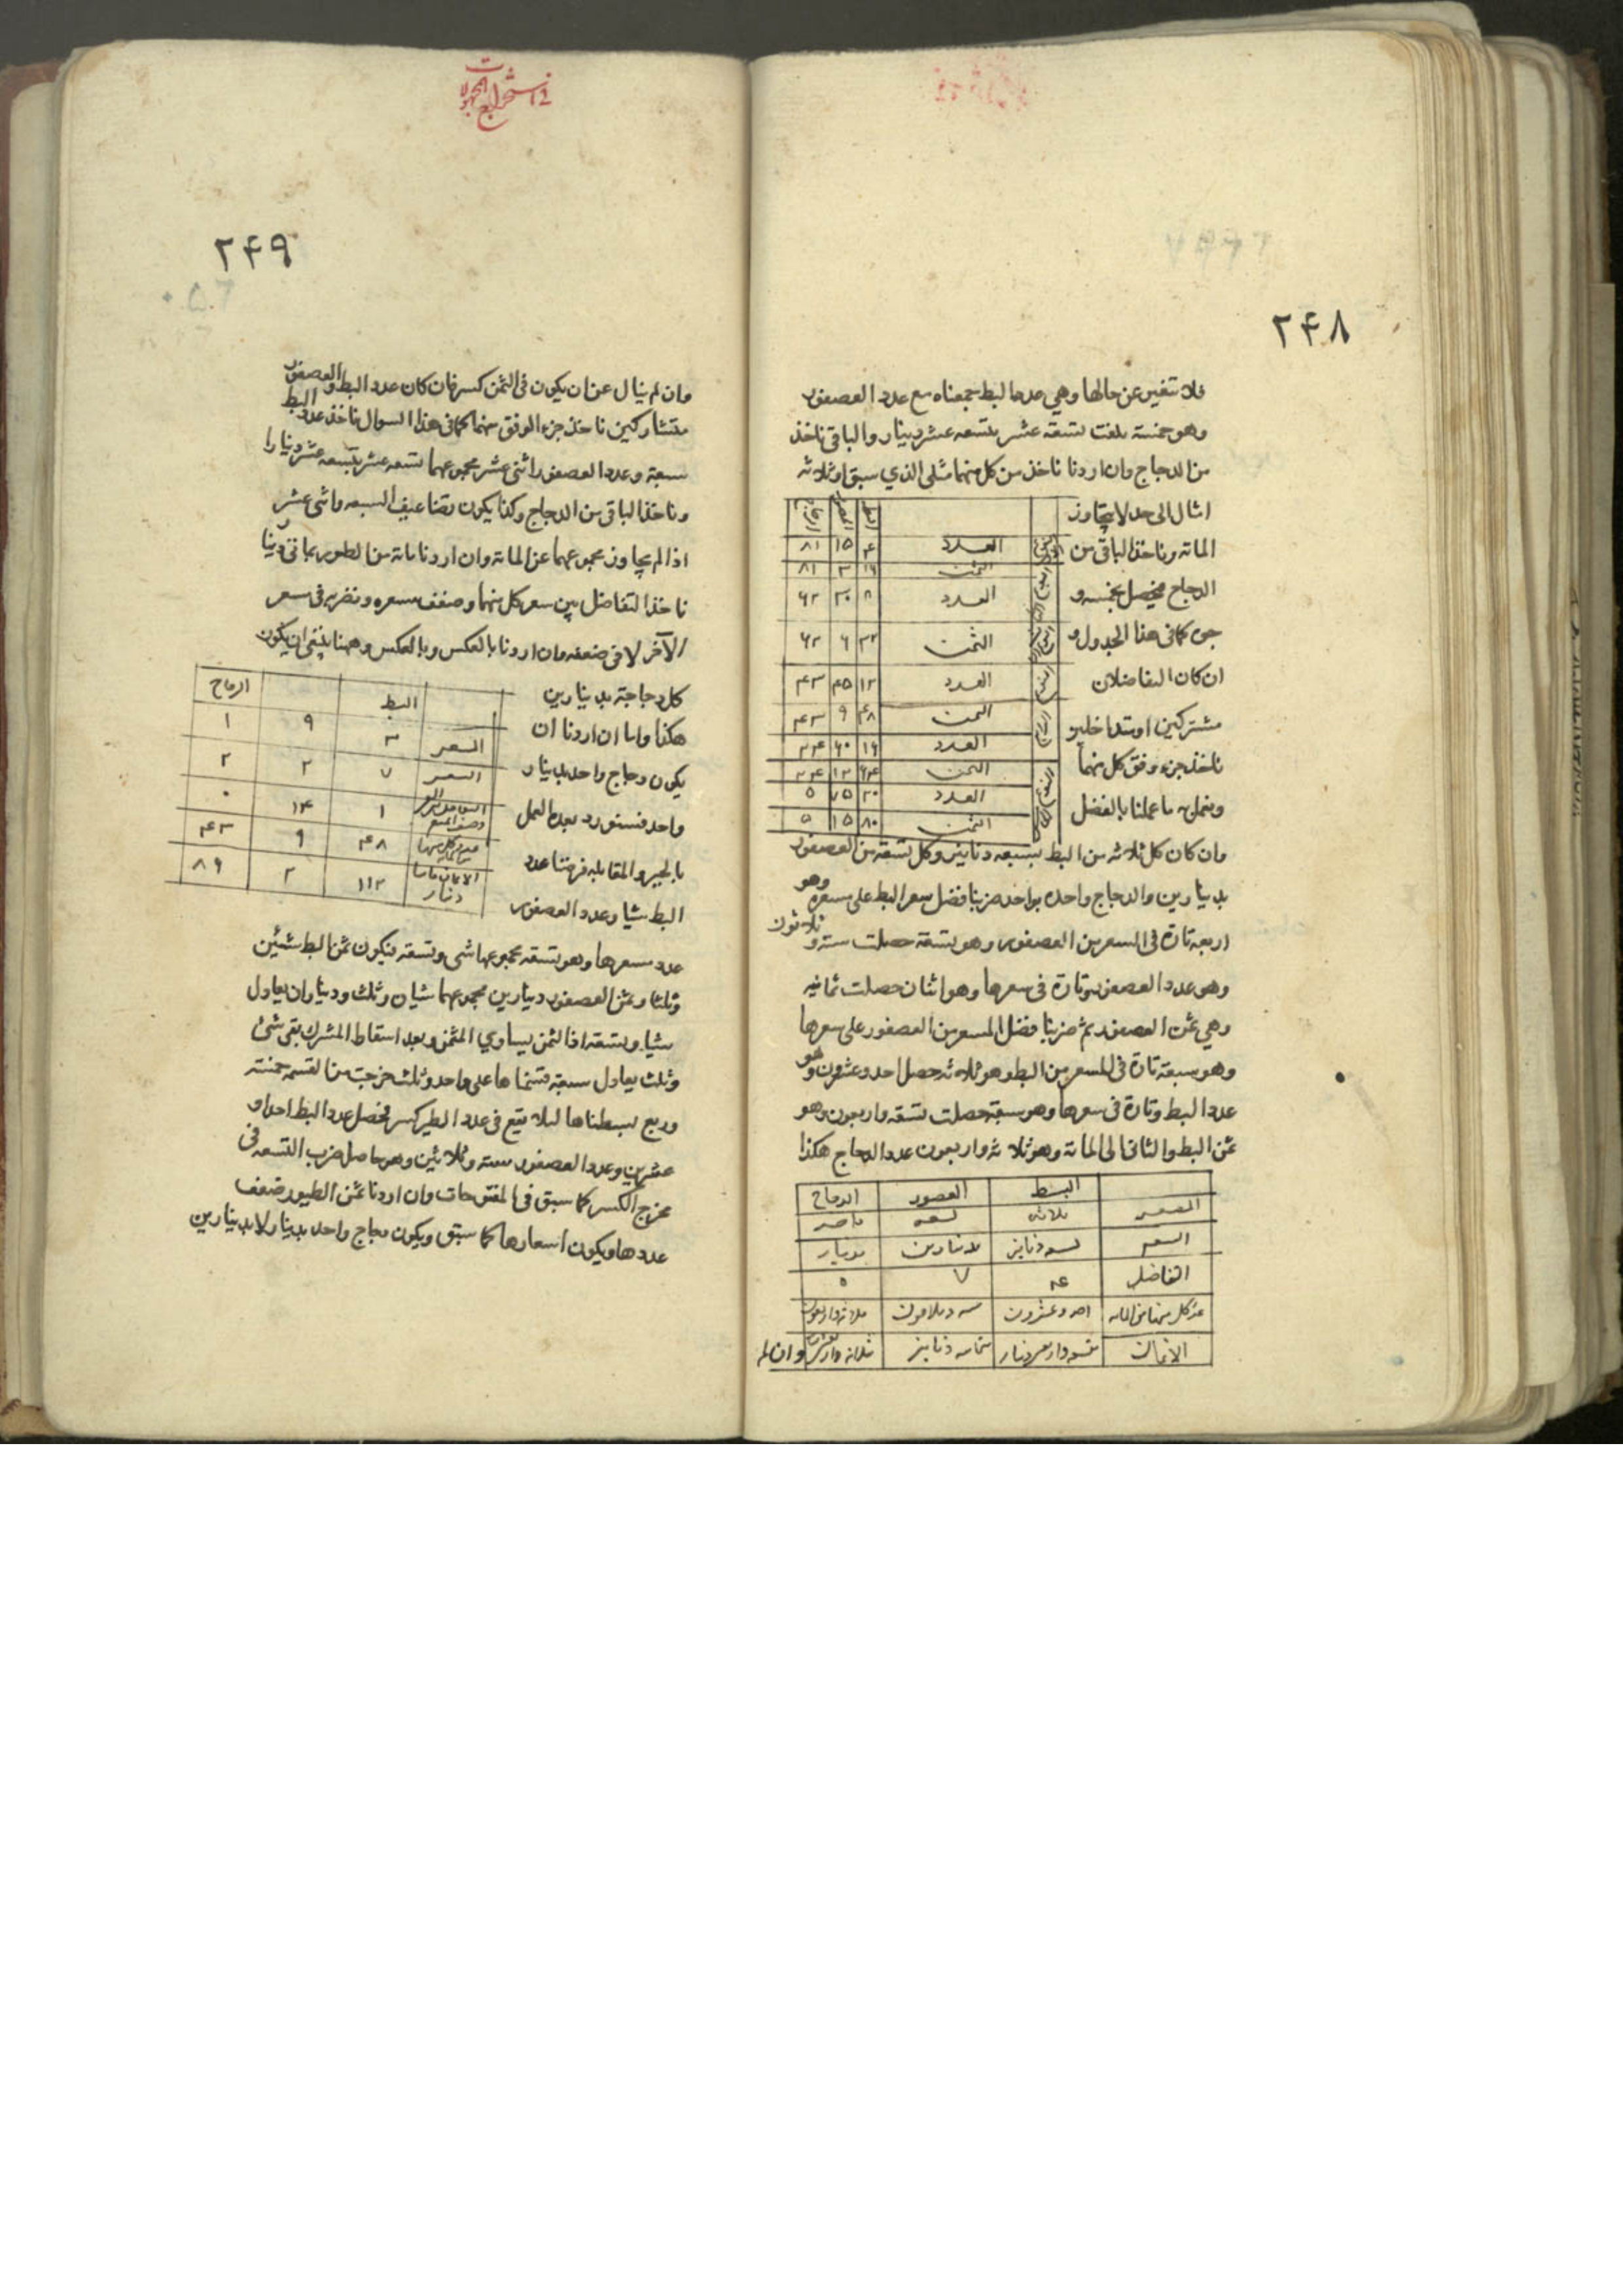 ٢۴٨
فلا تتغير عن حالها وهي عدد البط جمعناه مع عدد العصفور
وهو خمسة بلغت تسعة عشر بتسعة عشر دينار والباقي ناخذ
من الدجاج وان اردنا ناخذ من كل منهما مثلي الذي سبق او ثلاثه
امثال الى حد لا يتجاوز
المائة وناخذ الباقي من
الدجاج فيحصل بخمسة و
جوه كما في هذا الجدول و
ان كان التفاضلان
مشتركين او متداخلين
ناخذ جزء وفق كل منهما
ونعمل به ما عملنا بالفضل
العدد ۴ ١۵ ٨١
الثمن ٣ ٨١
العدد ٨ ٣٠ ۶٢
الثمن ٣٢ ۶ ۶٢
العدد ١٢ ۴۵ ۴٣
الثمن ۴٨ ٩ ۴٣
العدد ١۶ ۶٠ ٢۴
الثمن ۶۴ ١٢ ٢۴
العدد ٢٠ ٧۵ ۵
الثمن ٨٠ ١۵ ۵
وان كان كل ثلاثه من البط بسبعه دنانير وكل تسعة من العصفور
بدينارين والدجاج واحده بواحد ضربنا فضل سعر البط على مسعره وهو
اربعه تارة في المسعر من العصفور وهو تسعة حصلت ستة و ثلاثون
وهو عدد العصفور وتارة في سعرها وهو اثنان حصلت ثمانيه
وهي ثمن العصفور ثم ضربنا فضل المسعر من العصفور على سعرها
وهو سبعة تارة في المسعر من البط وهو ثلاثه حصل احد وعشرون وهو
عدد البط وتارة في سعرها وهو سبعة حصلت تسعة واربعون وهو
ثمن البط والثاني الى المائة وهو ثلاثة واربعون عدد الدجاج هكذا
البط العصفور الدجاج
المسعر ثلاثه تسعه واحد
السعر سبعه دنانير بدينارين بدينار
التفاضل ۴ ٧ ٠
عدد كل منها من المائه احد وعشرون سته وثلاثون ثلاثه واربعون
الاثمان تسعه واربعون دينار ثمانيه دنانير ثلاثه واربعون
وان لم
استخراج المجهولات
٢۴٩
وان لم ينال عن ان يكون في الثمن كسر فان كان عدد البط والعصفور
متشاركين ناخذ جزء الوفق منهما كما في هذا السوال ناخذ عدد البط
سبعة وعدد العصفور اثنى عشر مجموعهما تسعه عشر بتسعه عشر دينارا
وناخذ الباقي من الدجاج وكذا يكون بتضاعيف السبعه واثنى عشر
اذا لم يجاوز مجموعهما عن المائة وان اردنا مائة من الطيور بمائتي دينار
ناخذ التفاضل بين سعر كل منهما وضعف مسعره ونضربه في سعر
الآخر لا في ضعفه وان اردنا بالعكس وبالعكس وههنا ينبغي ان يكون
كل دجاجة بدينارين
هكذا واما ان اردنا ان
يكون دجاج واحد بدينار
واحد فسنورد بعده العمل
بالجبر والمقابله فرضنا عدد
البط شيا وعدد العصفور
البط الدجاج
المسعر ٣ ٩ ١
السعر ٧ ٢ ٢
١ ١۴ ٠
۴٨ ٩ ۴٣
١١٢ ٢ ٨۶
عدد مسعرها وهو تسعة مجموعهما شي وتسعة فيكون ثمن البط شيئين
وثلثا وثمن العصفور دينارين مجموعهما شيان وثلث وديناران يعادل
شيا وتسعة اذ الثمن يساوي المثمن وبعد اسقاط المشترك بقي شئ
وثلث يعادل سبعة قسمناها على واحد وثلث خرجت من القسمه خمسة
وربع بسطناها لئلا يقع في عدد الطير كسر فحصل عدد البط احد و
عشرين وعدد العصفور سته وثلاثين وهو حاصل ضرب التسعه في
مخرج الكسر كما سبق في المفتوحات وان اردنا ثمن الطيور ضعف
عددها ويكون اسعارها كما سبق ويكون دجاج واحد بدينار لا بدينارين